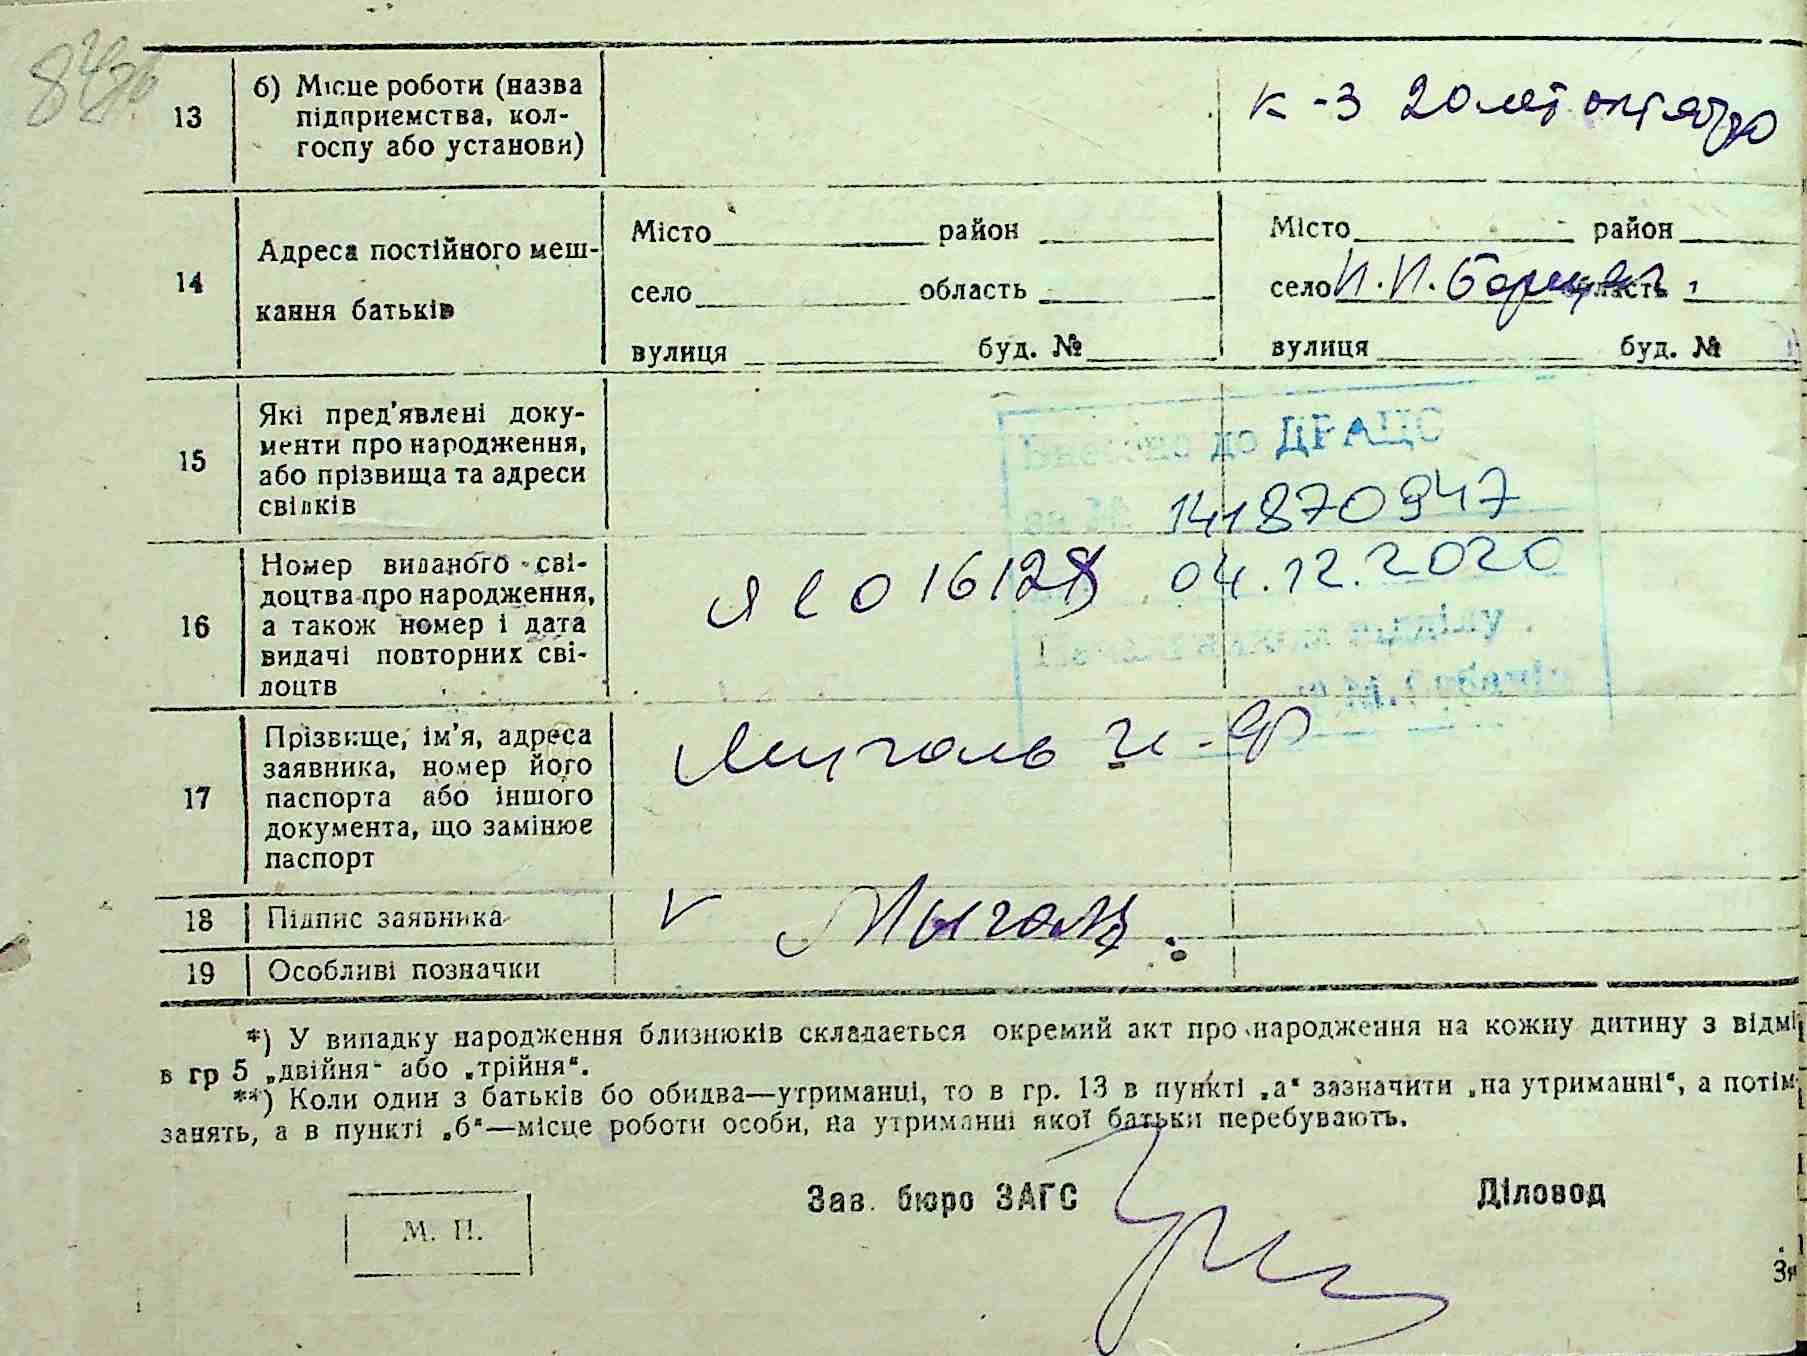 13
б) Місце роботи (назва
підприємства, кол-
госпу або установи)
к-з 20 лет октября
14
Адреса постійного меш-
кання батьків
Місто район
село область
вулиця буд. №
Місто район
село область
вулиця буд. №
15
Які пред'явлені доку-
менти про народження,
або прізвища та адреси
свідків
Внесено до ДРАЦС
141870947
04.12.2020
16
Номер виданого сві-
доцтва про народження,
а також номер і дата
видачі повторних сві-
доцтв
016128
17
Прізвище, ім'я, адреса
заявника, номер його
паспорта або іншого
документа, що замінює
паспорт
18
Підпис заявника
V
19
Особливі позначки
*) У випадку народження близнюків складається окремий акт про народження на кожну дитину з відмі
в гр 5 „двійня" або „трійня".
**) Коли один з батьків бо обидва—утриманці, то в гр. 13 в пункті „а" зазначити „на утриманні", а потім
занять, а в пункті „б"—місце роботи особи, на утриманні якої батьки перебувають.
Зав. бюро ЗАГС
Діловод
М. П.